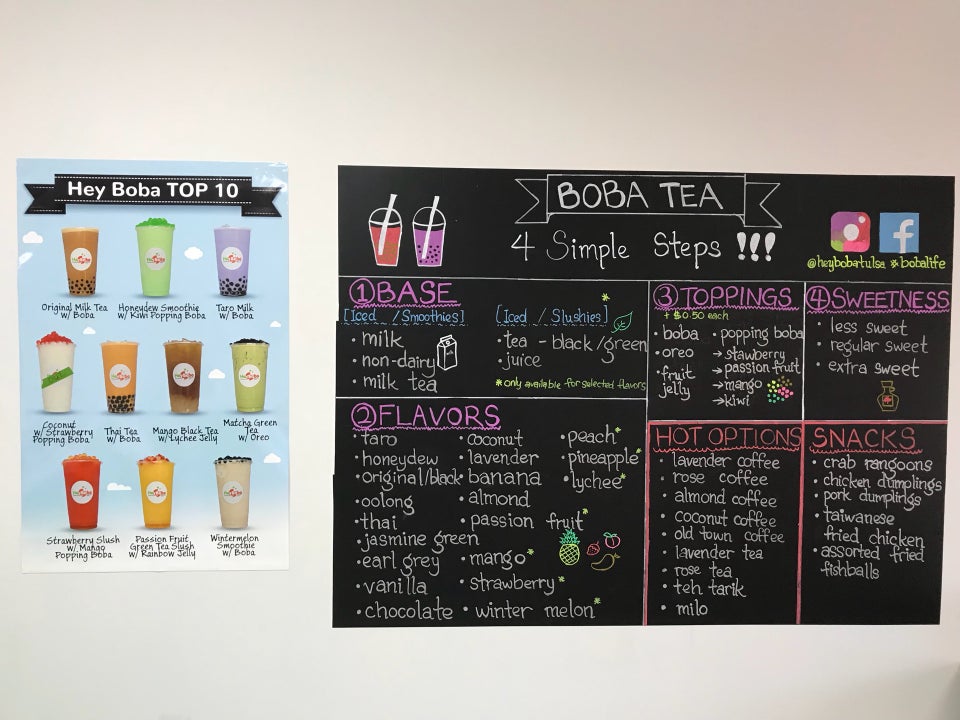 Hey Boba TOP 10
Original Milk Tea
w/ Boba
Honeydew Smoothie
w/ Kiwi Popping Boba
Taro Milk
w/ Boba
Coconut
w/ Strawberry
Popping Boba
Thai Tea
w/ Boba
Mango Black Tea
w/ Lychee Jelly
Matcha Green
Tea
w/ Oreo
Strawberry Slush
w/ Mango
Popping Boba
Passion Fruit
Green Tea Slush
w/ Rainbow Jelly
Wintermelon
Smoothie
w/ Boba
BOBA TEA
4 Simple Steps !!!
@heybobatulsa #bobalife
① BASE
[Iced / Smoothies]
• milk
• non-dairy
• milk tea
[Iced / Slushies]*
• tea - black/green
• juice
* only available for selected flavors
② FLAVORS
• taro
• honeydew
• original/black*
• oolong
• thai
• jasmine green
• earl grey
• vanilla
• chocolate
• coconut
• lavender
• banana
• almond
• passion fruit*
• mango*
• strawberry*
• winter melon*
• peach*
• pineapple*
• lychee*
③ TOPPINGS
+ $0.50 each
• boba
• oreo
• fruit
jelly
• popping boba
→ stawberry
→ passion fruit
→ mango
→ kiwi
④ SWEETNESS
• less sweet
• regular sweet
• extra sweet
HOT OPTIONS
• lavender coffee
• rose coffee
• almond coffee
• coconut coffee
• old town coffee
• lavender tea
• rose tea
• teh tarik
• milo
SNACKS
• crab rangoons
• chicken dumplings
• pork dumplings
• taiwanese
fried chicken
• assorted fried
fishballs